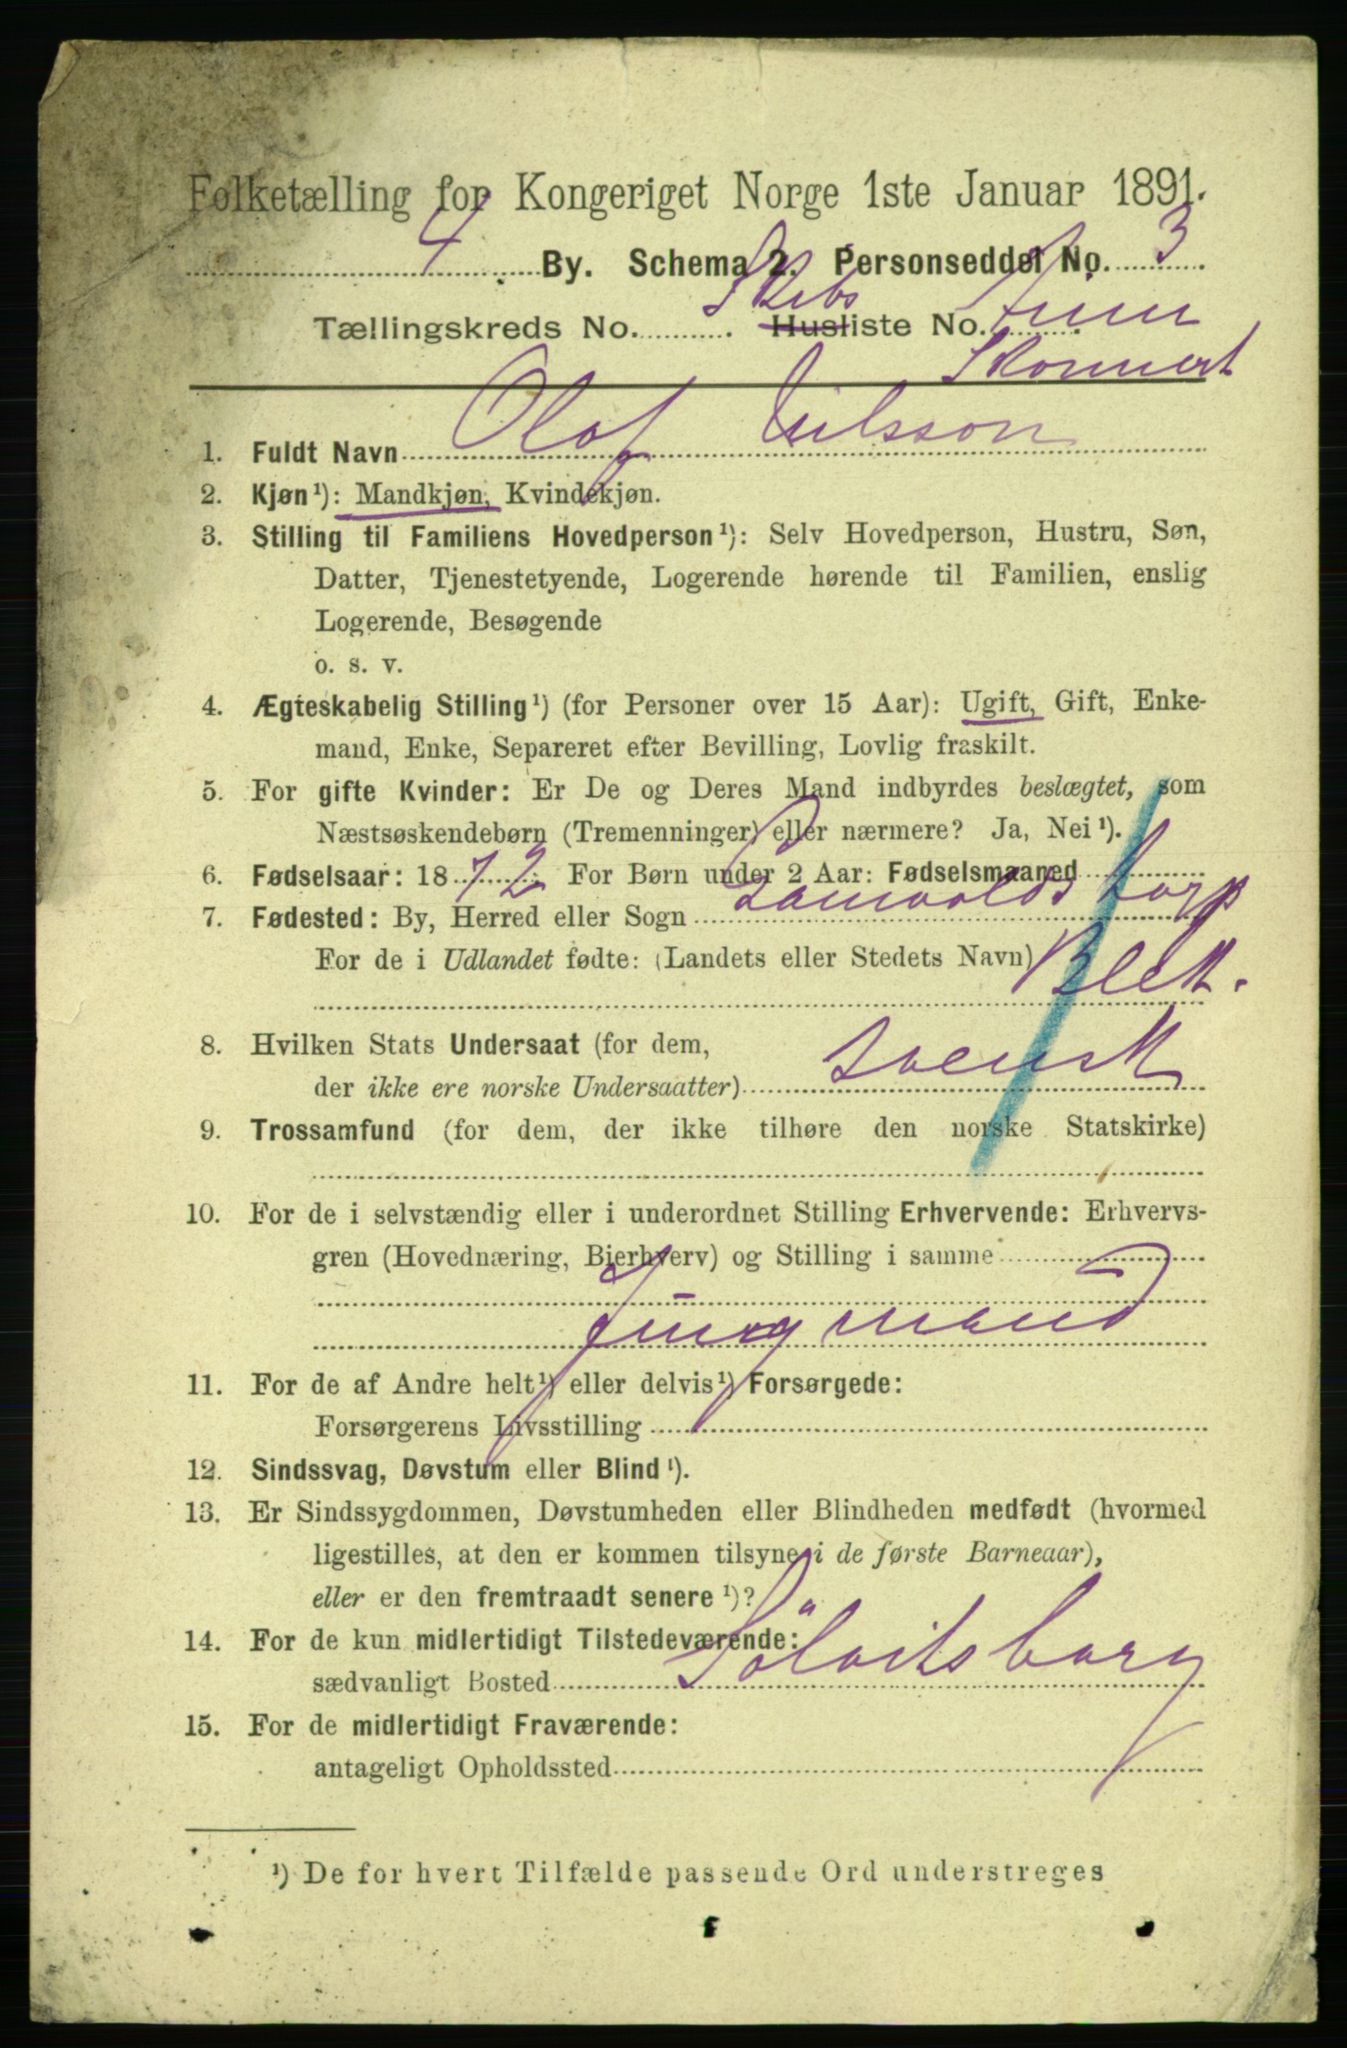 Folketælling for Kongeriget Norge 1ste Januar 1891.
4 By. Schema 2. Personseddel No. 3
Skibs
Tællingskreds No. . Husliste No. .
Skonnert
1. Fuldt Navn Olof Nilsson
2. Kjøn¹): Mandkjøn, Kvindekjøn.
3. Stilling til Familiens Hovedperson¹): Selv Hovedperson, Hustru, Søn,
Datter, Tjenestetyende, Logerende hørende til Familien, enslig
Logerende, Besøgende
o. s. v.
4. Ægteskabelig Stilling¹) (for Personer over 15 Aar): Ugift, Gift, Enke-
mand, Enke, Separeret efter Bevilling, Lovlig fraskilt.
5. For gifte Kvinder: Er De og Deres Mand indbyrdes beslægtet, som
Næstsøskendebørn (Tremenninger) eller nærmere? Ja, Nei¹).
6. Fødselsaar: 1872 For Børn under 2 Aar: Fødselsmaaned
7. Fødested: By, Herred eller Sogn
For de i Udlandet fødte: (Landets eller Stedets Navn)
8. Hvilken Stats Undersaat (for dem,
der ikke ere norske Undersaatter) svensk
9. Trossamfund (for dem, der ikke tilhøre den norske Statskirke)
10. For de i selvstændig eller i underordnet Stilling Erhvervende: Erhvervs-
gren (Hovednæring, Bierhverv) og Stilling i samme
Jungmand
11. For de af Andre helt¹) eller delvis¹) Forsørgede:
Forsørgerens Livsstilling
12. Sindssvag, Døvstum eller Blind¹).
13. Er Sindssygdommen, Døvstumheden eller Blindheden medfødt (hvormed
ligestilles, at den er kommen tilsyne i de første Barneaar),
eller er den fremtraadt senere¹)?
14. For de kun midlertidigt Tilstedeværende:
sædvanligt Bosted Sölvitsborg
15. For de midlertidigt Fraværende:
antageligt Opholdssted
¹) De for hvert Tilfælde passende Ord understreges